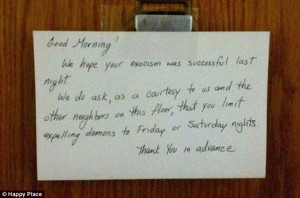 Good Morning!
We hope your exocism was successful last
night.
We do ask, as a courtesy to us and the
other neighbors on this floor, that you limit
expelling demons to Friday or Saturday nights.
Thank You in advance
© Happy Place